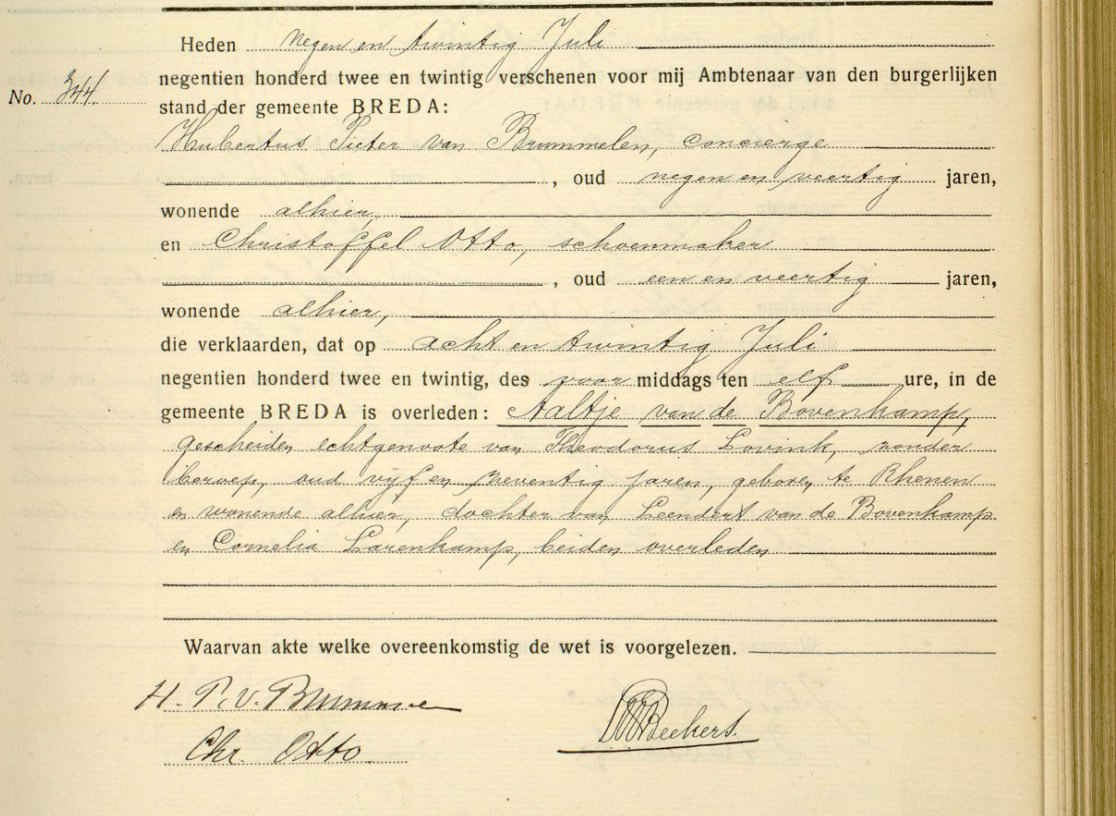 Heden negen en twintig Juli
No. 344.
negentien honderd twee en twintig verschenen voor mij Ambtenaar van den burgerlijken
stand der gemeente BREDA:
Hubertus Pieter van Brummelen, concierge
, oud negen en veertig jaren,
wonende alhier,
en Christoffel Otto, schoenmaker
, oud een en veertig jaren,
wonende alhier,
die verklaarden, dat op acht en twintig Juli
negentien honderd twee en twintig, des voor middags ten elf ure, in de
gemeente BREDA is overleden: Aaltje van de Bovenkamp,
gescheiden echtgenoote van Theodorus Lovink, zonder
beroep, oud vijf en zeventig jaren, geboren te Rhenen
en wonende alhier, dochter van Leendert van de Bovenkamp
en Cornelia Larenkamp, beiden overleden
Waarvan akte welke overeenkomstig de wet is voorgelezen.
H. P. v. Brummelen
Chr. Otto
Beekers.